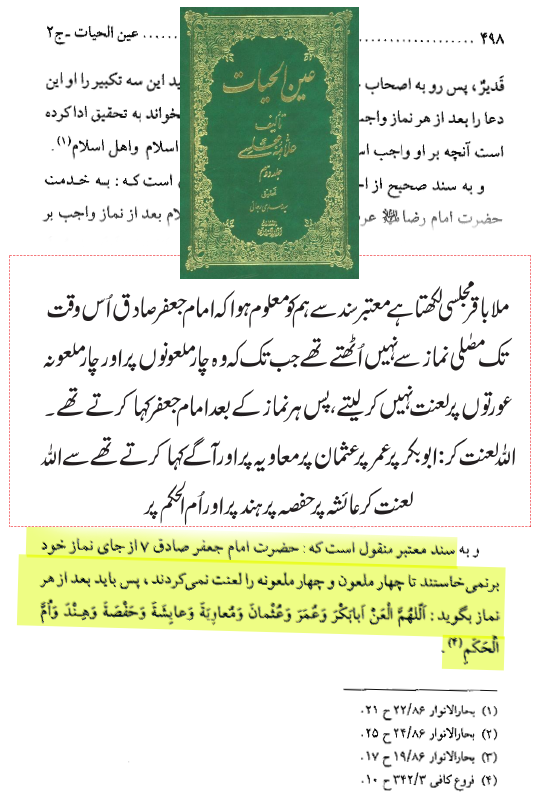 ۴۹۸ ........................ عین الحیات ـ ج۲
قَدیرٌ ، پس رو به اصحاب
ید این سه تکبیر را و این
دعا را بعد از هر نماز واجب
بخواند به تحقیق ادا کرده
است آنچه بر او واجب اس
اسلام واهل اسلام(۱).
و به سند صحیح از
است که : به خدمت
حضرت امام رضا
لام بعد از نماز واجب بر
عین الحیات
تألیف
علامه مجلسی
جلد دوم
ملا باقر مجلسی لکھتا ہے معتبر سند سے ہم کو معلوم ہوا کہ امام جعفر صادق اُس وقت
تک مصٰلی نماز سے نہیں اُٹھتے تھے جب تک کہ وہ چار ملعونوں پر اور چار ملعونہ
عورتوں پر لعنت نہیں کر لیتے ، پس ہر نماز کے بعد امام جعفر کہا کرتے تھے ۔
اللہ لعنت کر : ابوبکر پر عمر پر عثمان پر معاویہ پر اور آگے کہا کرتے تھے سے اللہ
لعنت کر عائشہ پر حفصہ پر ہند پر اور اُم الحکم پر
و به سند معتبر منقول است که : حضرت امام جعفر صادق ۷ از جای نماز خود
برنمی خاستند تا چهار ملعون و چهار ملعونه را لعنت نمی کردند ، پس باید بعد از هر
نماز بگوید : اَللهُمَّ الْعَنْ اَبابَکْرَ وَعُمَرَ وَعُثْمانَ وَمُعاوِیَةَ وَعایِشَةَ وَحَفْصَةَ وَهِنْدَ وَاُمَّ
الْحَکَمِ(۴).
(۱) بحارالانوار ۲۲/۸۶ ح ۲۱.
(۲) بحارالانوار ۲۴/۸۶ ح ۲۵.
(۳) بحارالانوار ۱۹/۸۶ ح ۱۷.
(۴) فروع کافی ۳۴۲/۳ ح ۱۰.